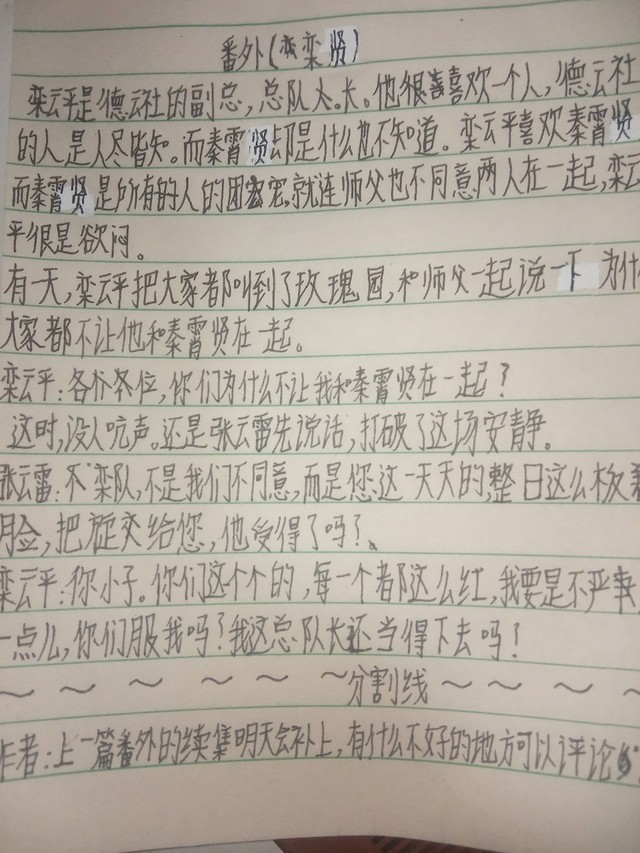 番外(栾贤)
栾云平是德云社的副总,总队长。他很喜欢一个人,德云社
的人是人尽皆知。而秦霄贤却是什么也不知道。栾云平喜欢秦霄贤
而秦霄贤是所有的人的团宠。就连师父也不同意两人在一起,栾云
平很是欲闷。
有一天,栾云平把大家都叫到了玫瑰园,和师父一起说一下 为什
大家都不让他和秦霄贤在一起。
栾云平:各位,你们为什么不让我和秦霄贤在一起?
这时,没人吭声。还是张云雷先说话,打破了这场安静。
张云雷:不栾队,不是我们不同意,而是您这一天天的,整日这么板着
脸,把旋交给您,他受得了吗?
栾云平:你小子。你们这个个的,每一个都这么红,我要是不严肃
一点儿,你们服我吗?我这总队长还当得下去吗!
~ ~ ~ ~ ~ ~分割线~ ~ ~ ~
作者:上一篇番外的续集明天会补上,有什么不好的地方可以评论